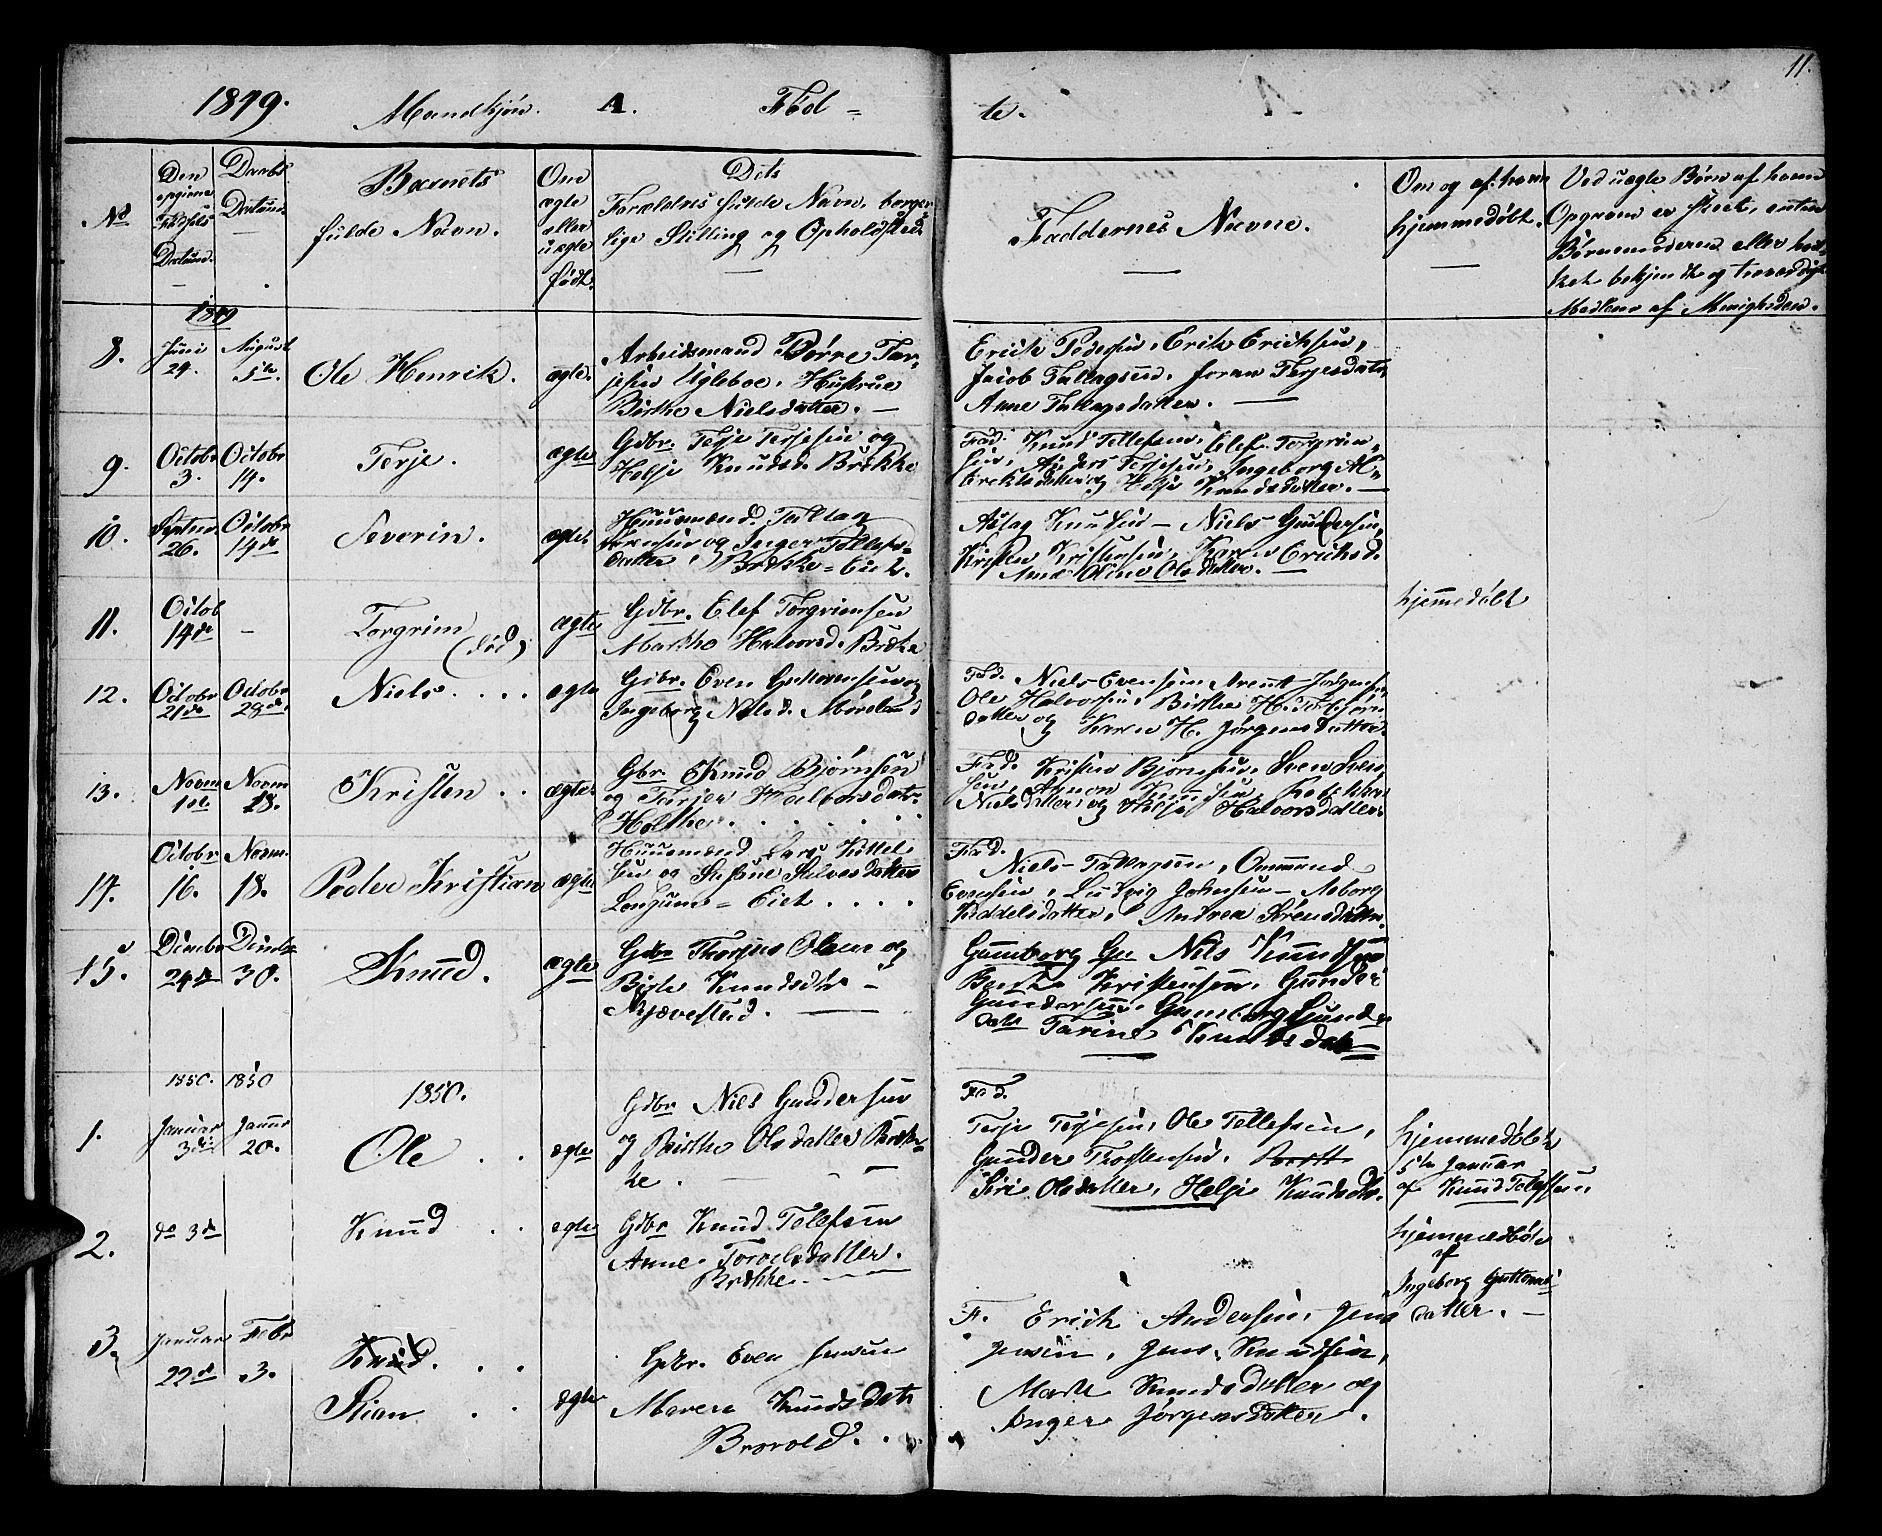 11.
1849. Mandkjøn. A. Fød=
te.
No
Den
Fødsels
Datum.
Daabs
Datum
Barnets
fulde Navn.
Om
ægte
eller
uægte
født.
Dets
Forældres fulde Navn, borger
lige Stilling og Opholdsted
Faddernes Navne.
Om og af hvem
hjemmedøbt.
Ved uægte Børn af hvem
Opgaven er skeet, enten
Barnemoderen eller
bekjendte og troværdige
Medlem af Menigheden.
1849
8.
Juni
24.
August
5te.
Ole Henrik.
ægte.
Arbeidsmand Børre Ter-
jesen Ugleboe. Hustrue
Birthe Nielsdatter. —
Erich Pedersen, Erik Erichsen,
Jacob Tallagsen. Joran Terjesdatr
Anne Tallagsdatter. —
9.
Octobr
3.
Octobr
14.
Terje.
ægte
Gdbr. Terje Terjesen og
Helje Knudsd. Brekke
Fad. Knud Tellefsen, Elef Torgrim-
sen, Anders Terjesen, Ingeborg
og Helje Knudsdatter. —
10.
Septem
26.
Octobr
14de
Severin.
ægte.
Huusmand. Tallag
og Inger Tellefs-
datter, Brekke=Eiet.
Aslag Knudsen — Niels Gundersen,
Kristen Kristensen, Karen Eriksd.
Anne Oline Olsdatter. —
11.
Octob
14de
—
Torgrim
(død)
ægte
Gdbr. Elef Torgrimsen
Marthe Halvorsd. Brekke
hjemmedøbt
12.
Octobr
21de
Octobr
28de.
Niels. . . .
ægte
Gdbr. Even Guttormsen og
Ingeborg Nielsd. Mørland
Fad. Niels Evensen Arent Jørgensen
Ole Halvorsen, Birthe H. Tobias
datter og Karen H. Jørgensdatter.
13.
Novem
1ste
Novem
18.
Kristen . .
ægte.
Gbr. Knud Bjørnsen
og Tarjer Halvorsdatr.
Holthe. . . . . . .
Fad. Kristen Bjørnsen, Sven Sven
sen, Aanon Knudsen,
Nielsdatter, og Helje Halvorsdatter.
14.
Octobr
16.
Novm.
18.
Peder Kristian
ægte
Huusmand Lars Kittel-
sen og Susane Halvorsdatter
Longum = Eiet . . . .
Fad.
Niels Tallagsen, Ommund
Evensen, Ludvig Johnsen — Asborg
Kiddelsdatter, Andrea Sørensdatter.
15.
Decmbr
24de
Decmbr
30.
Knud.
ægte
Gdbr Thorjus Olsen og
Birte Knudsdtr —
Mjævestad. —
Gunborg Gu Nils Knudsen
Kristensen, Gunder
Gundersen, Gunborg Gunders
datr Tarine Knudsdatr
1850. 1850
1850.
1.
Januar
3die
Januar
20.
Ole . .
ægte
Gdbr Niels Gundersen
og Birthe Olsdatter Brek-
ke. —
Fad.
Terje Terjesen, Ole Tellefsen,
Gunder Trostensen.
Siri Olsdatter, Helje Knudsdtr.
hjemmedøbt
5te Januar
af Knud Tellefsen
2.
do 3die
Knud . .
ægte
Gdbr Knud Tellefsen
Anne Torvelsdatter.
Brekke
hjemmedøbt
af
Ingeborg Guttorms
datter. —
3.
Januar
22de
Febr
3.
Knud. . .
Stian . .
ægte
Gdbr. Even Jensen
Maren Knudsdatr
Brovold. . .
F. Erick Andersen, Jens
Jensen, Jens Knudsen,
Marte Knudsdatter og
Inger Jørgensdatter.